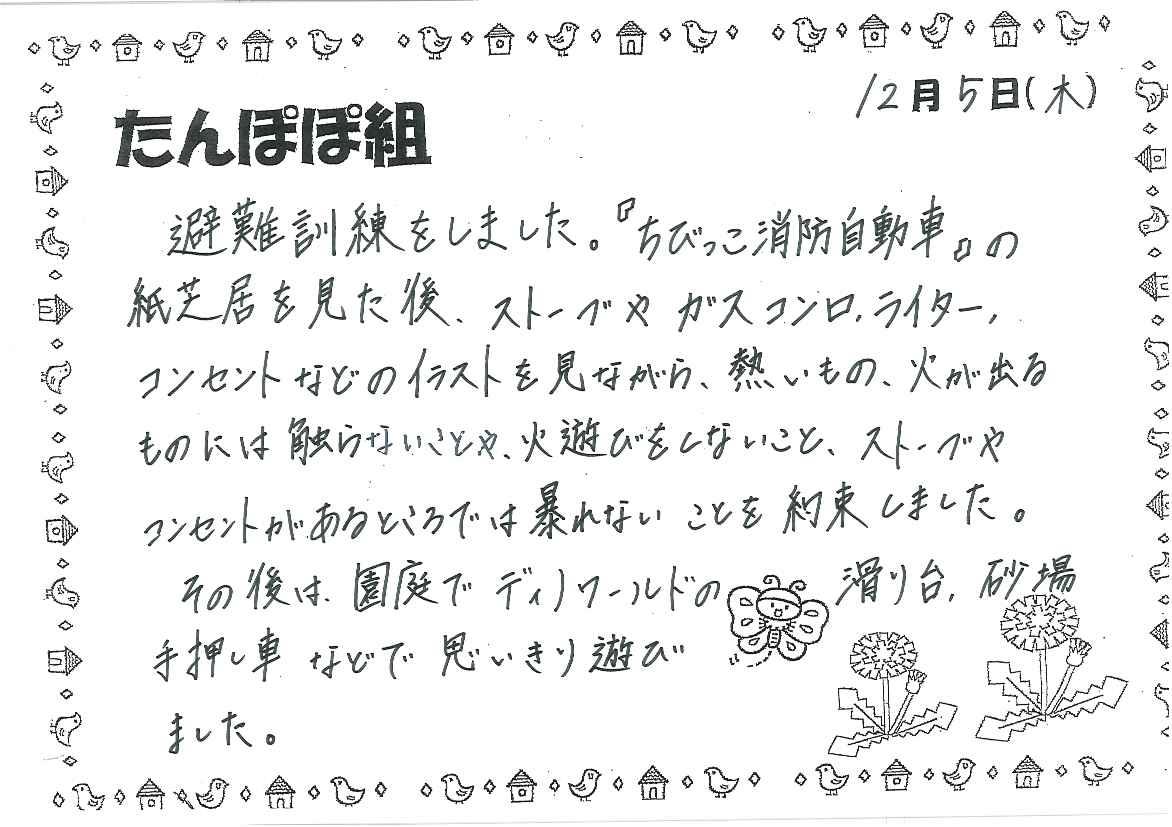 12月5日(木)
たんぽぽ組
避難訓練をしました。『ちびっこ消防自動車』の
紙芝居を見た後、ストーブや ガスコンロ、ライター、
コンセントなどのイラストを見ながら、熱いもの、火が出る
ものには触らないことや、火遊びをしないこと、ストーブや
コンセントがあるところでは暴れない ことを約束しました。
その後は、園庭で ディノワールドの 滑り台、砂場
手押し車 などで 思いきり遊び
ました。